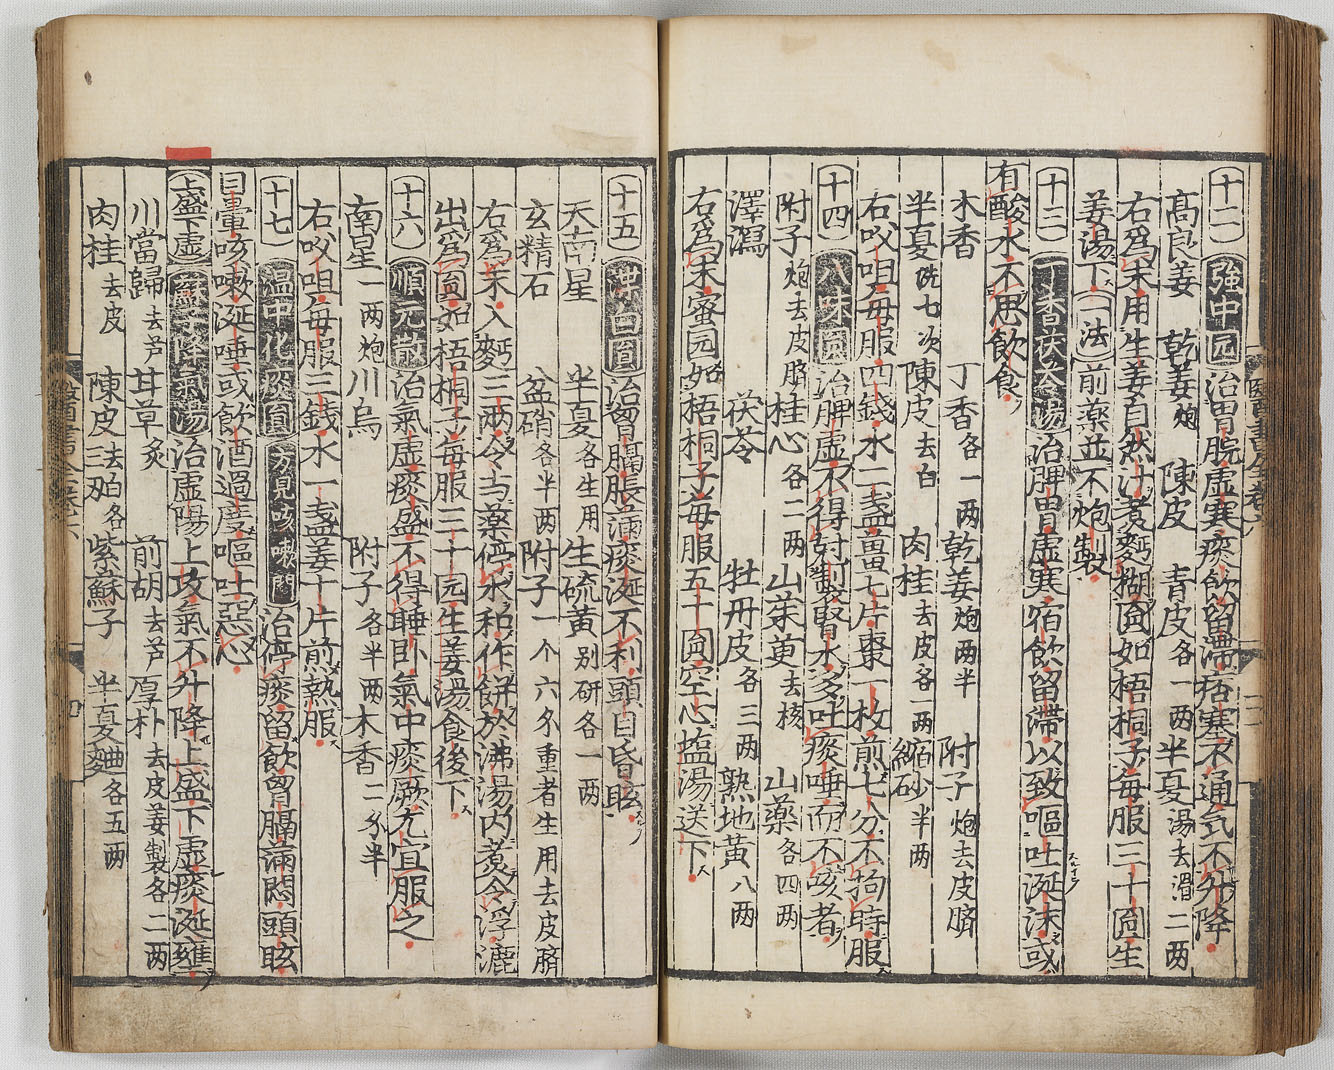 (十二)強中圓治胃脘虛寒痰飲留滯痞塞不通氣不升降
高良姜 乾姜炮 陳皮 青皮各一两半夏湯去滑二两
右爲末用生姜自然汁煮麪糊圓如梧桐子每服三十圓生
姜湯下(一法)前藥並不炮製
(十三)丁香茯苓湯治脾胃虛寒宿飲留滯以致嘔吐涎沫或
有酸水不思飲食
木香 丁香各一两乾姜炮两半 附子炮去皮臍
半夏洗七次陳皮去白 肉桂去皮各一两縮砂半两
右㕮咀每服四錢水二盞薑七片棗一枚煎七分不拘時服
(十四)八味圓治脾虛不得封制腎水多吐痰唾而不咳者
附子炮去皮臍桂心各二两山茱萸去核 山藥各四两
澤瀉 茯苓 牡丹皮各三两熟地黃八两
右爲末蜜园如梧桐子每服五十圓空心塩湯送下
(十五)治胷膈脹滿痰涎不利頭目昏眩
天南星 半夏各生用生硫黃别研各一两
玄精石 盆硝各半两附子一个六分重者生用去皮臍
右爲末入麪三两令与藥停水和作餅於沸湯內煮令浮漉
出爲圓如梧桐子每服三十园生姜湯食後下
(十六)順元散治氣虛痰盛不得睡卧氣中痰厥尤宜服之
南星一两炮川烏 附子各半两木香二分半
右㕮咀每服三錢水一盞姜十片煎熱服
(十七)温中化痰圓方見咳嗽門治停痰留飲胷膈滿悶頭眩
目暈咳嗽涎唾或飲酒過度嘔吐惡心
(上盛下虛)蘇子降氣湯治虛陽上攻氣不升降上盛下虛痰涎壅
川當歸去芦甘草炙 前胡去芦厚朴去皮姜製各二两
肉桂去皮 陳皮去白各三两紫蘇子 半夏麯各五两